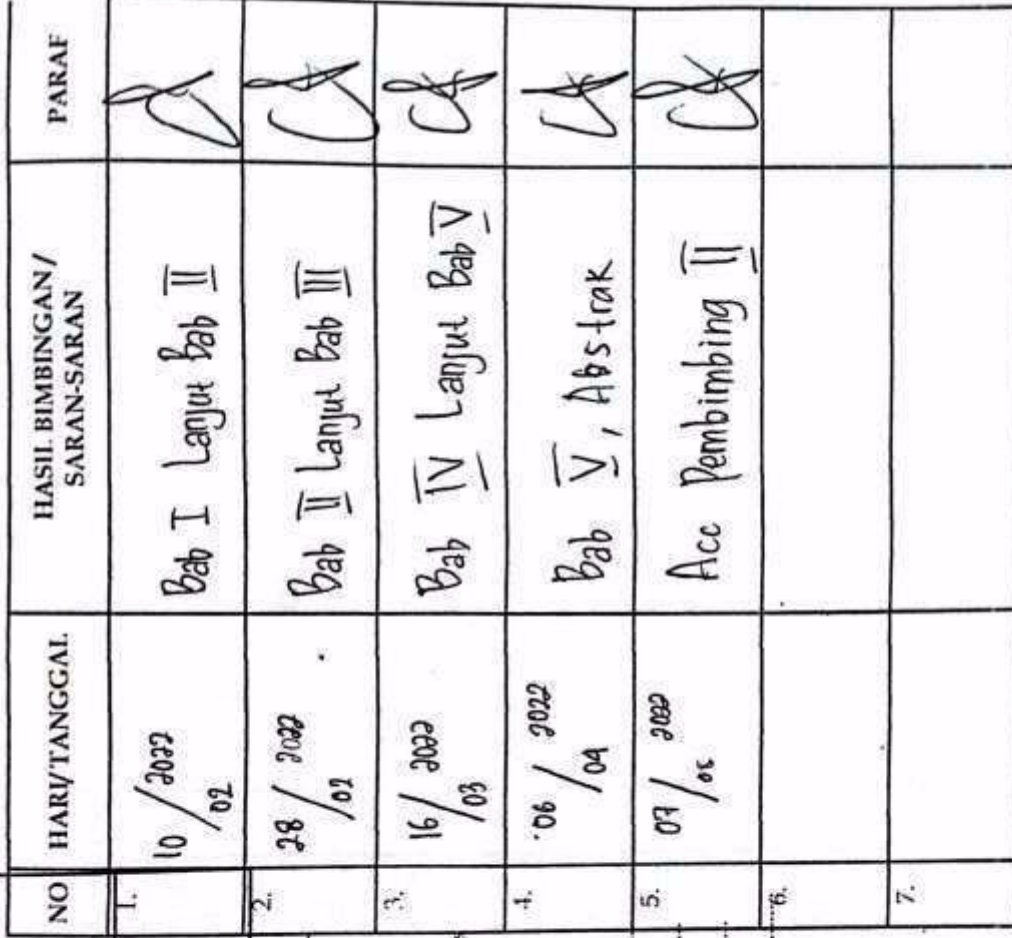 NO HARI/TANGGAL HASIL BIMBINGAN/ PARAF
SARAN-SARAN
1. 10/02 2022 Bab I Lanjut Bab II
2. 28/02 2022 Bab II Lanjut Bab III
3. 16/03 2022 Bab IV Lanjut Bab V
4. 06/04 2022 Bab V, Abstrak
5. 07/ 2022 Acc Pembimbing II
6.
7.